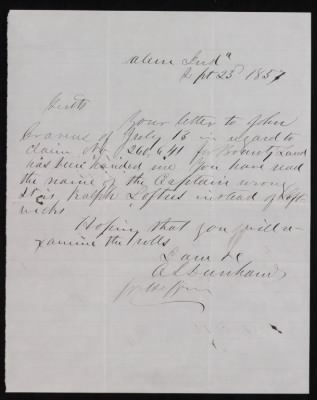 Salem Ind^a
Sept 23^d 1857
Sir
Your letter to John
Cravens of July 16 in regard to
claim No 266,641 for Bounty Land
has been handed me You have read
the name of the Captain wrong
It is Ralph Loftus instead of Loft-
wicks
Hoping that you will e-
xamine the rolls
I am &c
C L Dunham